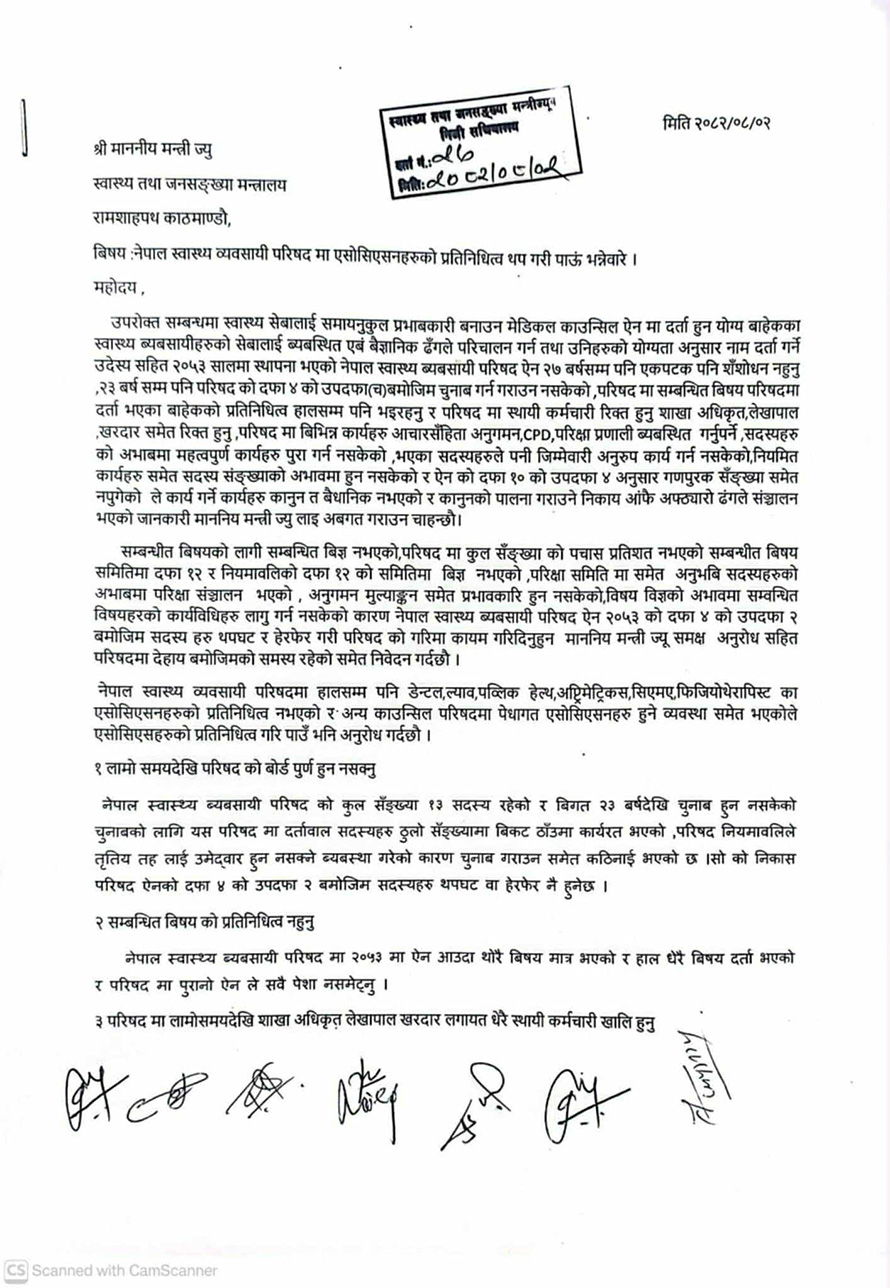 स्वास्थ्य तथा जनसङ्ख्या मन्त्रीज्यूको
निजी सचिवालय
दर्ता नं.: २६
मिति: २०८२/०८/०२
मिति २०८२/०८/०२
श्री माननीय मन्त्री ज्यु
स्वास्थ्य तथा जनसङ्ख्या मन्त्रालय
रामशाहपथ काठमाण्डौ,
बिषय :नेपाल स्वास्थ्य व्यवसायी परिषद मा एसोसिएसनहरुको प्रतिनिधित्व थप गरी पाऊं भन्नेवारे ।
महोदय ,
उपरोक्त सम्बन्धमा स्वास्थ्य सेबालाई समायनुकुल प्रभाबकारी बनाउन मेडिकल काउन्सिल ऐन मा दर्ता हुन योग्य बाहेकका
स्वास्थ्य ब्यबसायीहरुको सेबालाई ब्यबस्थित एबं बैज्ञानिक ढँगले परिचालन गर्न तथा उनिहरुको योग्यता अनुसार नाम दर्ता गर्ने
उदेस्य सहित २०५३ सालमा स्थापना भएको नेपाल स्वास्थ्य ब्यबसायी परिषद ऐन २७ बर्षसम्म पनि एकपटक पनि शँशोधन नहुनु
,२३ बर्ष सम्म पनि परिषद को दफा ४ को उपदफा(च)बमोजिम चुनाब गर्न गराउन नसकेको ,परिषद मा सम्बन्धित बिषय परिषदमा
दर्ता भएका बाहेकको प्रतिनिधित्व हालसम्म पनि भइरहनु र परिषद मा स्थायी कर्मचारी रिक्त हुनु शाखा अधिकृत,लेखापाल
,खरदार समेत रिक्त हुनु ,परिषद मा बिभिन्न कार्यहरु आचारसँहिता अनुगमन,CPD,परिक्षा प्रणाली ब्यबस्थित गर्नुपर्ने ,सदस्यहरु
को अभाबमा महत्वपुर्ण कार्यहरु पुरा गर्न नसकेको ,भएका सदस्यहरुले पनी जिम्मेवारी अनुरुप कार्य गर्न नसकेको,नियमित
कार्यहरु समेत सदस्य संङ्ख्याको अभावमा हुन नसकेको र ऐन को दफा १० को उपदफा ४ अनुसार गणपुरक सँङ्ख्या समेत
नपुगेको ले कार्य गर्ने कार्यहरु कानुन त बैधानिक नभएको र कानुनको पालना गराउने निकाय आंफै अफ्ठ्यारो ढंगले संञ्चालन
भएको जानकारी माननिय मन्त्री ज्यु लाइ अबगत गराउन चाहन्छौ।
सम्बन्धीत बिषयको लागी सम्बन्धित बिज्ञ नभएको,परिषद मा कुल सँङ्ख्या को पचास प्रतिशत नभएको सम्बन्धीत बिषय
समितिमा दफा १२ र नियमावलिको दफा १२ को समितिमा बिज्ञ नभएको ,परिक्षा समिति मा समेत अनुभबि सदस्यहरुको
अभाबमा परिक्षा संञ्चालन भएको , अनुगमन मुल्याङ्कन समेत प्रभावकारि हुन नसकेको,विषय विज्ञको अभावमा सम्वन्धित
विषयहरको कार्यविधिहरु लागु गर्न नसकेको कारण नेपाल स्वास्थ्य ब्यबसायी परिषद ऐन २०५३ को दफा ४ को उपदफा २
बमोजिम सदस्य हरु थपघट र हेरफेर गरी परिषद को गरिमा कायम गरिदिनुहुन माननिय मन्त्री ज्यू समक्ष अनुरोध सहित
परिषदमा देहाय बमोजिमको समस्य रहेको समेत निवेदन गर्दछौ ।
नेपाल स्वास्थ्य व्यवसायी परिषदमा हालसम्म पनि डेन्टल,ल्याव,पव्लिक हेल्थ,अप्ट्रिमेट्रिकस,सिएमए,फिजियोथेरापिस्ट का
एसोसिएसनहरुको प्रतिनिधित्व नभएको र अन्य काउन्सिल परिषदमा पेधागत एसोसिएसनहरु हुने व्यवस्था समेत भएकोले
एसोसिएसहरुको प्रतिनिधित्व गरि पाउँ भनि अनुरोध गर्दछौ ।
१ लामो समयदेखि परिषद को बोर्ड पुर्ण हुन नसक्नु
नेपाल स्वास्थ्य ब्यबसायी परिषद को कुल सँङ्ख्या १३ सदस्य रहेको र बिगत २३ बर्षदेखि चुनाब हुन नसकेको
चुनाबको लागि यस परिषद मा दर्तावाल सदस्यहरु ठुलो सँङ्ख्यामा बिकट ठाँउमा कार्यरत भएको ,परिषद नियमावलिले
तृतिय तह लाई उमेद्वार हुन नसक्ने ब्यबस्था गरेको कारण चुनाब गराउन समेत कठिनाई भएको छ ।सो को निकास
परिषद ऐनको दफा ४ को उपदफा २ बमोजिम सदस्यहरु थपघट वा हेरफेर नै हुनेछ ।
२ सम्बन्धित बिषय को प्रतिनिधित्व नहुनु
नेपाल स्वास्थ्य ब्यबसायी परिषद मा २०५३ मा ऐन आउदा थोरै बिषय मात्र भएको र हाल धेरै बिषय दर्ता भएको
र परिषद मा पुरानो ऐन ले सवै पेशा नसमेट्नु ।
३ परिषद मा लामोसमयदेखि शाखा अधिकृत लेखापाल खरदार लगायत धेरै स्थायी कर्मचारी खालि हुनु
CS Scanned with CamScanner